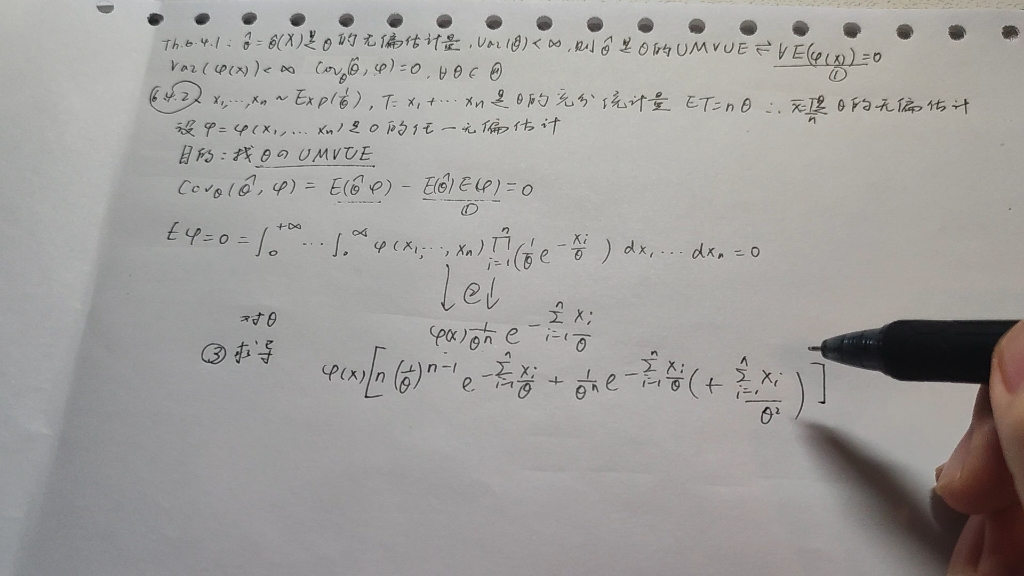 Th.6.4.1: θ̂=θ̂(X)是θ的无偏估计量,Var(θ̂)<∞,则θ̂是θ的UMVUE ⇌ ∀E(φ(x))=0
①
Var(φ(x))<∞ Cov_θ(θ̂,φ)=0,∀θ∈Θ
6.4.2 x₁,…,xₙ~Exp(1/θ),T=x₁+…xₙ是θ的充分统计量 ET=nθ ∴ n θ的无偏估计
设φ=φ(x₁,…xₙ)是0的任一无偏估计
目的:找θの UMVUE
Cov_θ(θ̂,φ)=E(θ̂φ)-E(θ̂)E(φ)=0
①
Eφ=0=∫₀^{+∞}…∫₀^∞ φ(x₁,…,xₙ)∏_{i=1}^{n}(1/θ e^{-xᵢ/θ})dx₁…dxₙ=0
↓②↓
φ(x)1/θⁿ e^{-∑_{i=1}^{n} xᵢ/θ}
对θ
③求导
φ(x)[n(1/θ)^{n-1} e^{-∑_{i=1}^{n} xᵢ/θ}+1/θⁿ e^{-∑_{i=1}^{n} xᵢ/θ}(+∑_{i=1}^{n} xᵢ/θ²)]